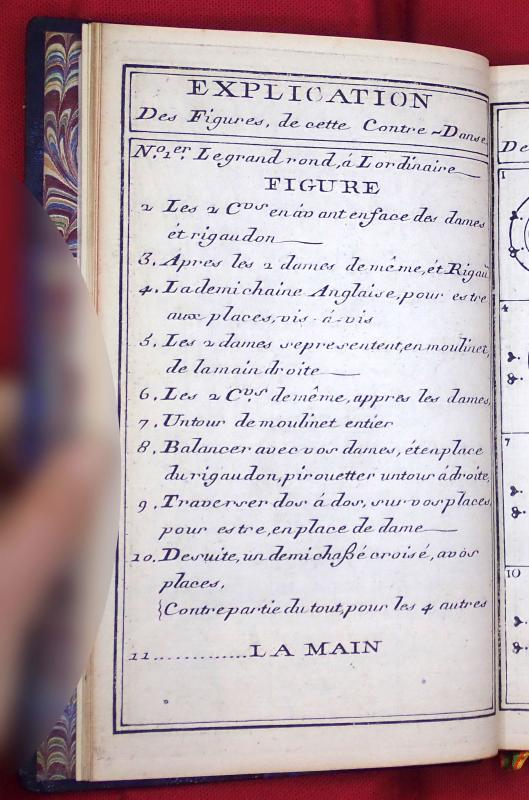 EXPLICATION
Des Figures, de cette Contre-Danse
N.o 1.er Legrand rond, á Lordinaire
FIGURE
2 Les 2 C.vrs en áv ant enface des dames
ét rigaudon
3. Apres les 2 dames deméme, ét Rigau
4. La demi chaine Anglaise, pour estre
aux places, vis-á-vis
5. Les 2 dames sepresentent, en moulinet,
de la main droite
6. Les 2 C.vrs deméme, appres les dames,
7. Untour de moulinet entier
8. Balancer avec vos dames, ét enplace
du rigaudon, pirouetter untour ádroite,
9. Traverser dos á dos, sur vos places,
pour estre, enplace de dame
10. Desuite, un demi chaßé croisé, avos
places,
{Contrepartie du tout, pour les 4 autres
11 ............. LA MAIN
De
1
4
7
10